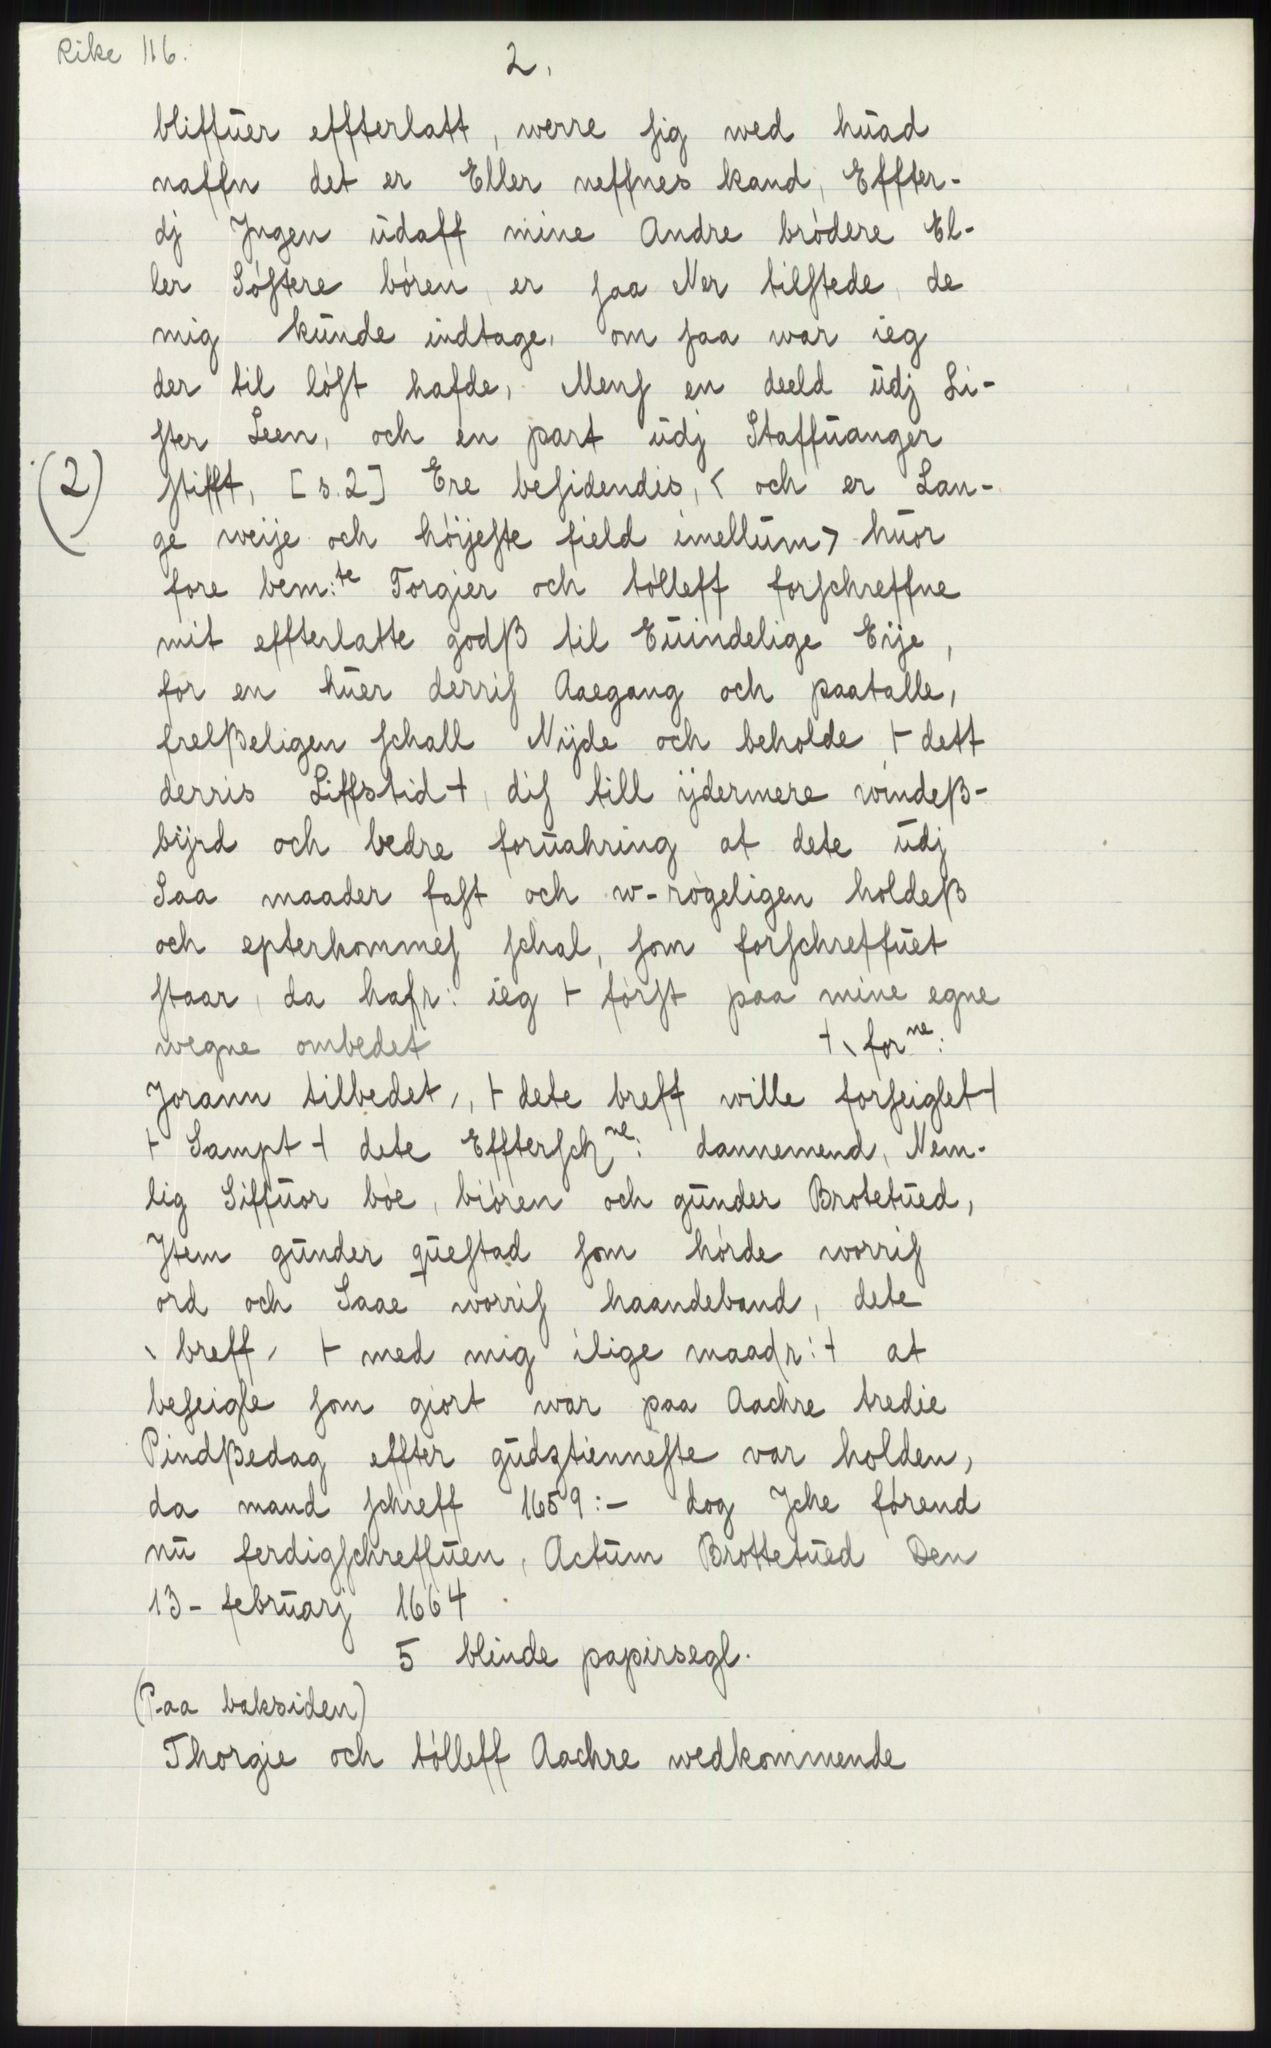 Rike 116.
2.
bliffuer effterlatt, werre sig wed huad
naffn det er Eller neffnes kand, Effter-
dj Jngen udaff mine Andre brødere El-
ler Søstere børen er saa Ner tilstede, de
mig kunde indtage, om saa war ieg
der til løst hafde, Mens en deeld udj Li-
ster Leen, och en part udj Staffuanger
(2)
stifft, [s. 2] Ere besidendis, < och er Lan-
ge weije och høijeste field imellum > huor
fore bem:te Torgier och tølleff forschreffne
mit effterlatte godß til Euindelige Eije,
for en huer derris Aaegang och paatalle,
frelßeligen schall Nijde och beholde ⊢ dett
derris Liffstid ⊣, dis till ijdermere windeß-
bijrd och bedre foruahring at dete udj
Saa maader fast och w-røgeligen holdeß
och epterkommes schal, som forschreffuet
staar, da hafr: ieg ⊢ først paa mine egne
wegne ombedet ⊣ \ for ne:
Jorann tilbedet /, ⊢ dete breff wille forseiglet ⊣
⊢ Sampt ⊣ dete Efftersch ne: dannemend, Nem-
lig Siffuor bøe, biøren och gunder Brotetued,
Jtem gunder questad som hørde worris
ord och Saae worris haandeband, dete
\ breff / ⊢ med mig ilige maadr: ⊣ at
beseigle som giort war paa Aachre tredie
Pindßedag effter gudztienneste var holden,
da mand schreff 1659:- dog Jche førend
nu ferdigschreffuen, Actum Brottetued Den
13- februarj 1664.
5 blinde papirsegl.
(Paa baksiden)
Thorgie och tølleff Aachre wedkommende